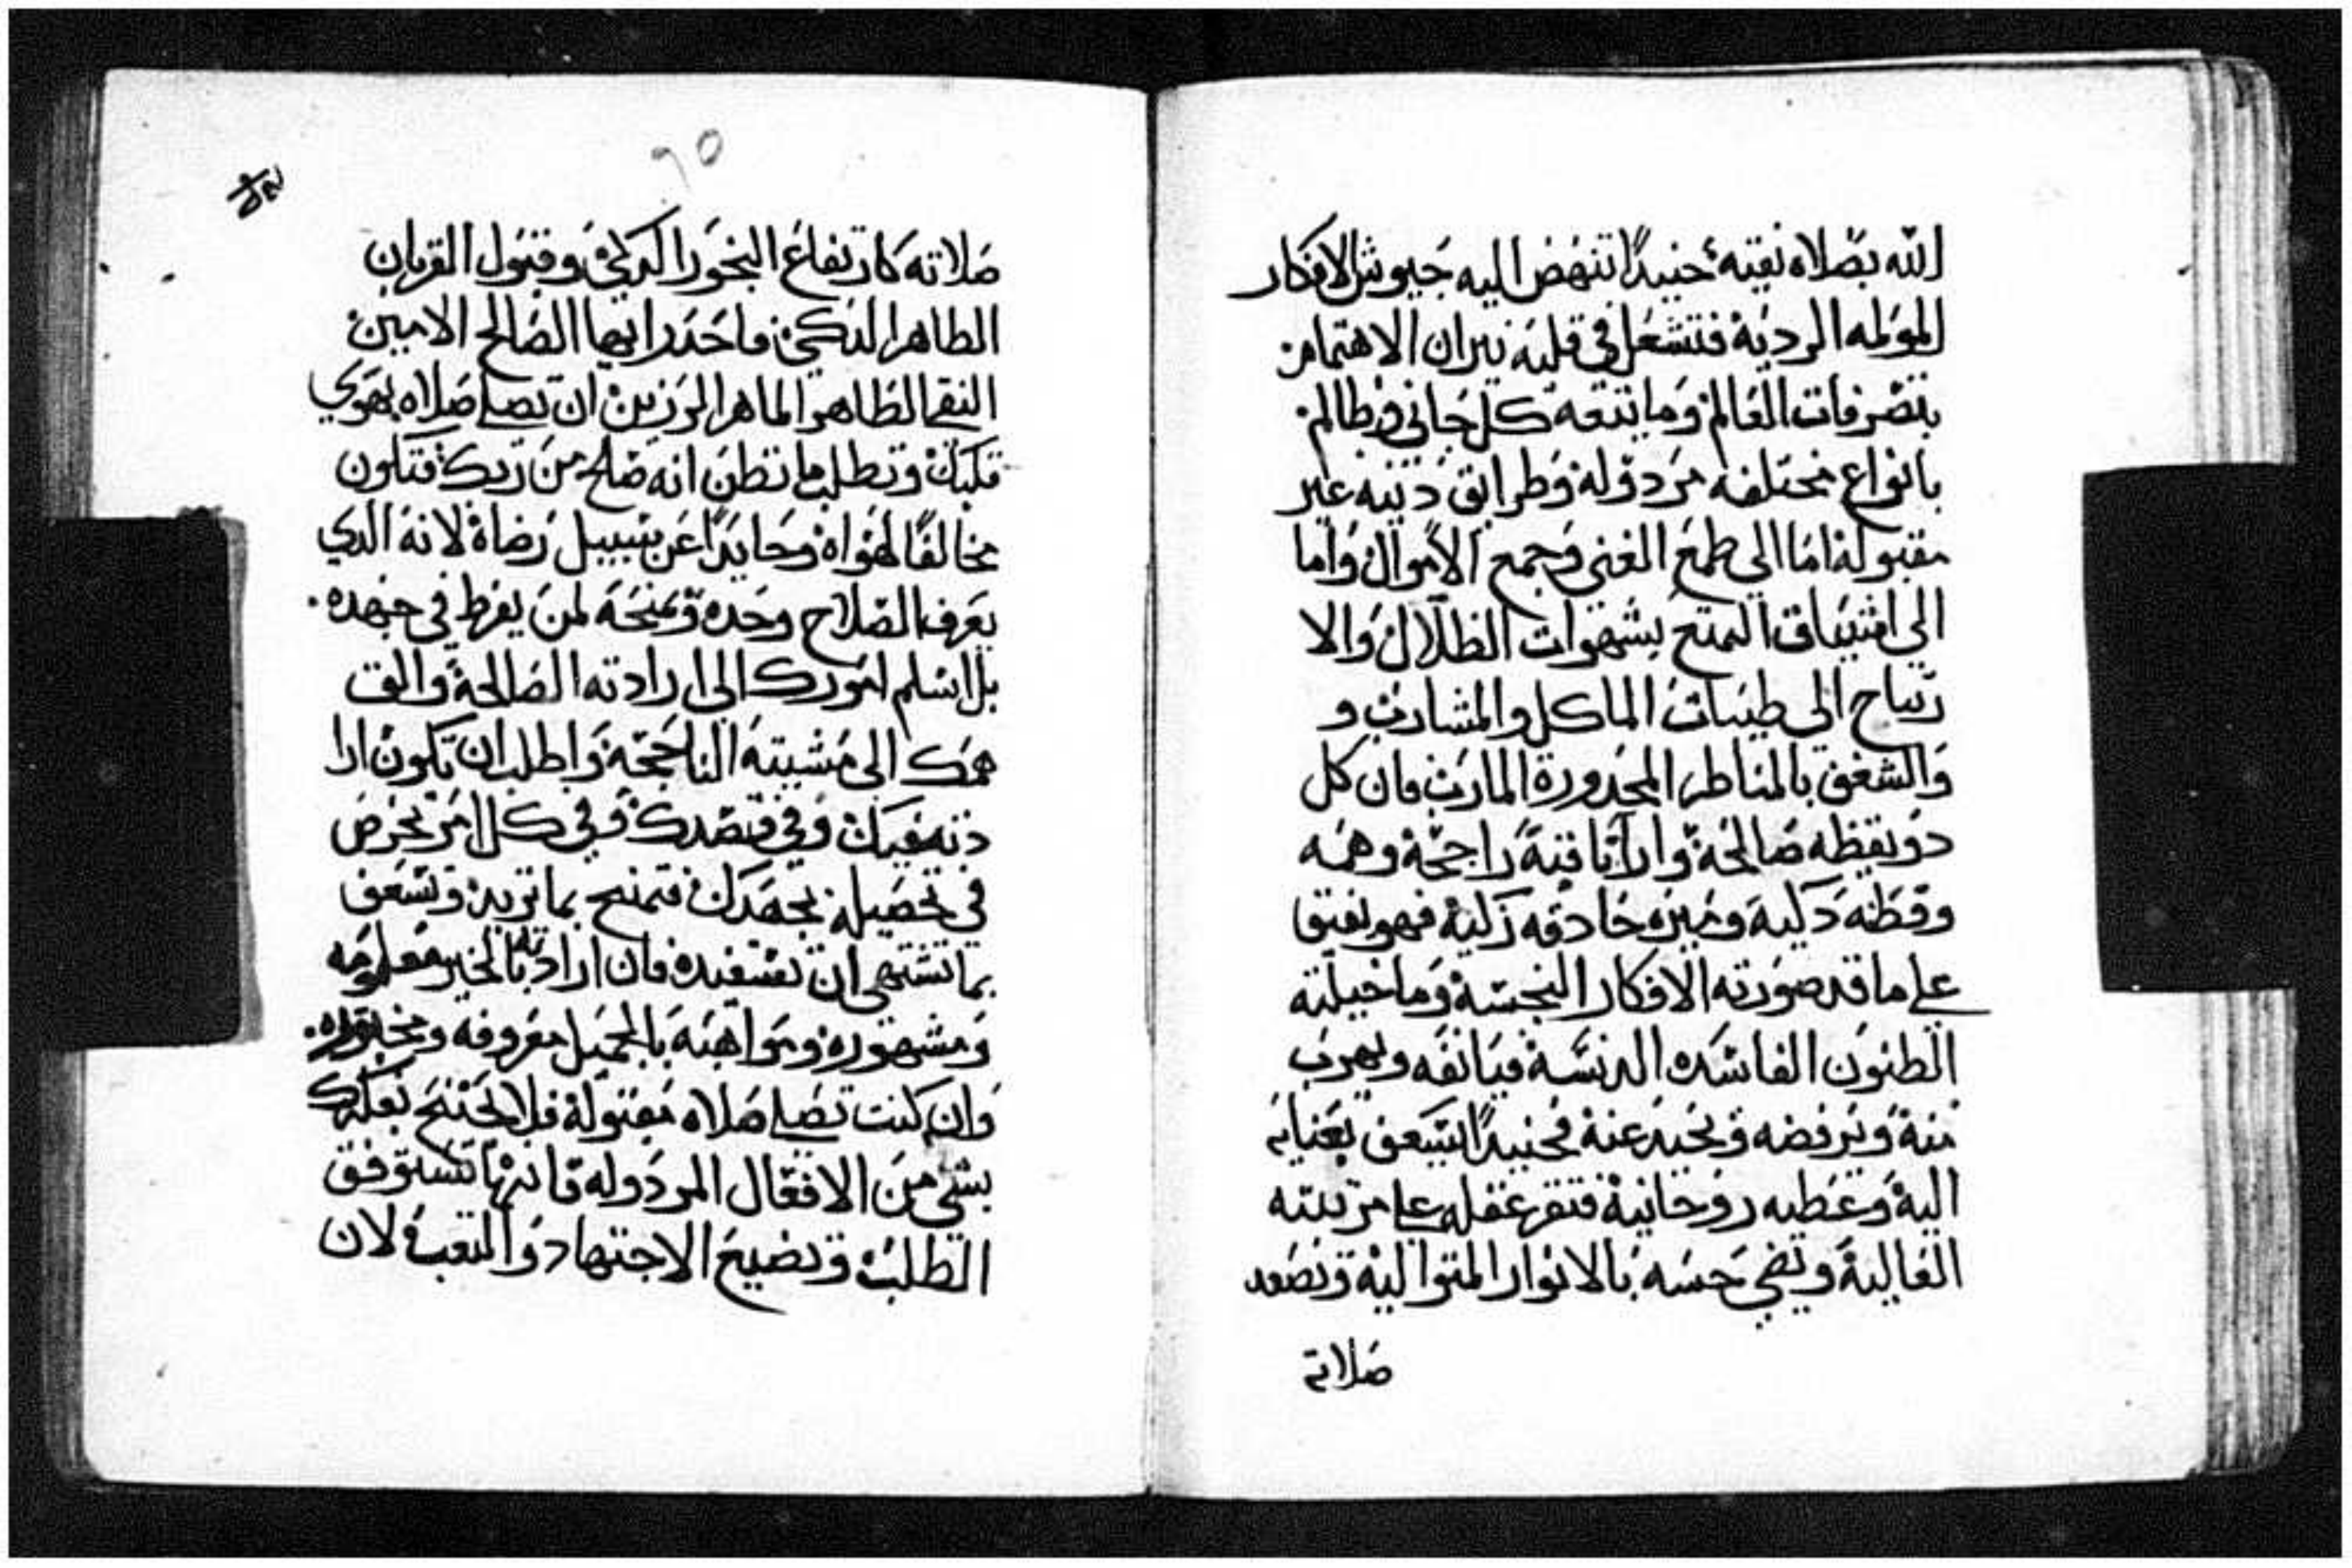 الله بصلاه نقيه حنيدًا تنهض اليه جيوش الافكار
المولمه الرديه فتشعل في قلبه نيران الاهتمام
بتصرفات العالم وما يتبعه كل جاني وظالم
بانواع مختلفه مردوله وطرايق دنيه غير
مقبوله اما الي طمع الغني وجمع الاموال واما
الي اشتياق التمتع بشهوات الظلال والا
رتياح الي طيبات الماكل والمشارب و
والشغف بالمناظر المحدورة المارب فان كل
دو يقظه صالحة واراثاقبة راجحة وهمه
وفطنه دكية وميزه حادقه زكية فهو يفيق
علي ما قد صورته الافكار النجسة وما خيلته
الظنون الفاسده الدنسة فيانفه ويهرب
منة ويرفضه ويحيد عنة فحنيدًا يسعف بعناية
الية وعطيه روحانية فتقر عقله علي مرتبته
العالية وتضي حسه بالانوار المتوالية وتصعد
صلاته
٦٥
صلاته كارتفاع البخور الدكي وقبول القربان
الطاهر النكي فاحدر ايها الصالح الامين
النقي الطاهر الماهر الرزين ان تصلي صلاه بهوي
قلبك وتطلب ما تظن انه صلح من ربك فتكون
مخالفًا لهواة وحايدًا عن سبيل رضاة لانه الدي
يعرف الصلاح وحده ويمنحه لمن يفرط في جهده
بل اسلم امورك الي ارادته الصالحة والق
همك الي مشيته الناجحة واطلب ان تكون ارا
دته فيك وفي قصدك وفي كل امر تحرص
في تحصيله بجهدك فتمنح بما تريد وتسعف
بما تشتهي ان تستفيده فان ارادته بالخير معلومه
ومشهوره ومواهبه بالجميل معروفه ومخبوره
وان كنت تصلي صلاه مقبولة فلا تجنح بفكرك
بشي من الافعال المردوله فانها تستوفق
الطلب وتضيع الاجتهاد والتعب لان